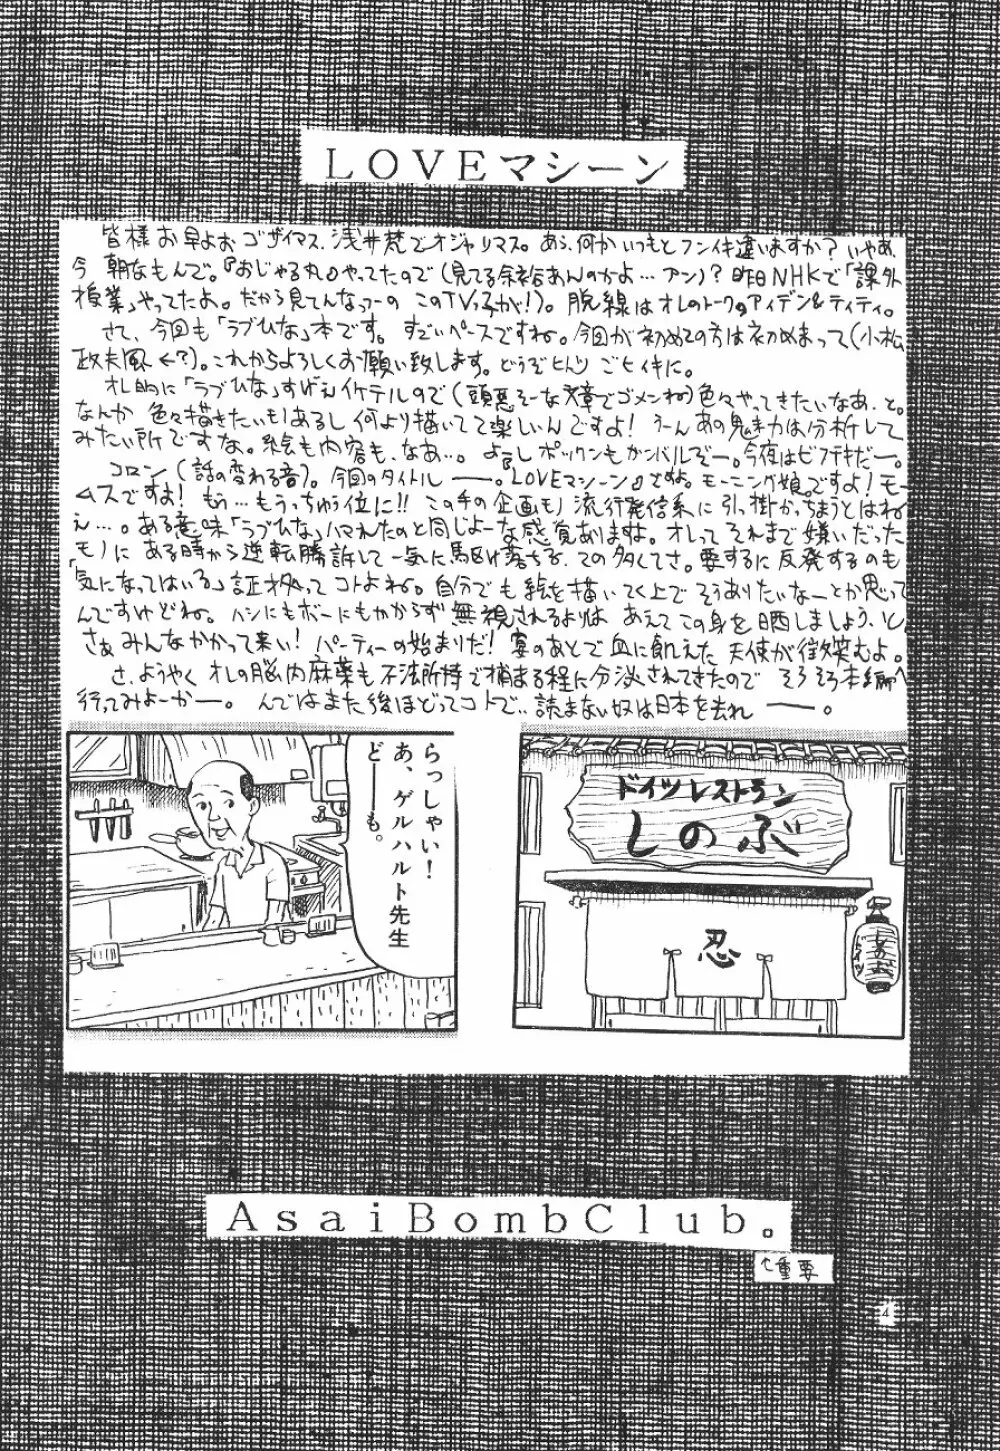 LOVEマシーン
皆様お早よおゴザイマス、浅井梵でオジャリマス。あら、何かいつもとフンイキ違いますか？いやぁ、
今朝なもんで。『おじゃる丸』やってたので(見てる余裕あんのかよ…アン)？昨日NHKで「課外
授業」やってたよ。だから見てんなっつーの このTVっ子が！)。脱線はオレのトークのアイデン&ティティ。
さて、今回も「ラブひな」本です。すごいペースですね。今回が初めての方は初めまして(小松
政夫風←?)。これからよろしくお願い致します。どうぞヒトツ ごヒイキに。
オレ的に「ラブひな」すげぇイケテルので(頭悪そーな文章でゴメンね)色々やってきたいなあ、と。
なんか 色々描きたいもんあるし 何より描いてて楽しいんですよ！うーん あの魅力は分析して
みたい所ですな。絵も内容も、なあ…。よぅし ボックンもガンバルぞー。今夜はビフテキだー。
コロン(話の変わる音)。今回のタイトル──。『LOVEマシーン』ですよ。モーニング娘。ですよ！モー
ムスですよ！もぅ…もうっちゅう位に!!この手の企画モノ流行発信系に引っ掛かっちまうとはね
ぇ…。ある意味「ラブひな」ハマれたのと同じよーな感覚ありますね。オレってそれまで嫌いだった
モノに ある時から逆転勝訴して 一気に駆け落ちる、ての多くてさ。要するに反発するのも
「気になってはいる」証拠ってコトよね。自分でも絵を描いてく上で そうありたいなーとか思って
んですけどね。ハシにもボーにもかからず無視されるよりは あえてこの身を晒しましょう、と。
さぁみんなかかって来い！パーティーの始まりだ！宴のあとで血に飢えた 天使が微笑むよ。
さ、ようやく オレの脳内麻薬も不法所持で捕まる程に分泌されてきたので そろそろ本編へ
行ってみよーかー。んではまた後ほどってコトで、読まない奴は日本を去れ──。
ドイツレストラン
しのぶ
忍
しのぶ
ドイツ
らっしゃい！
あ、ゲルハルト先生
どーーも。
AsaiBombClub。
↑重要
4